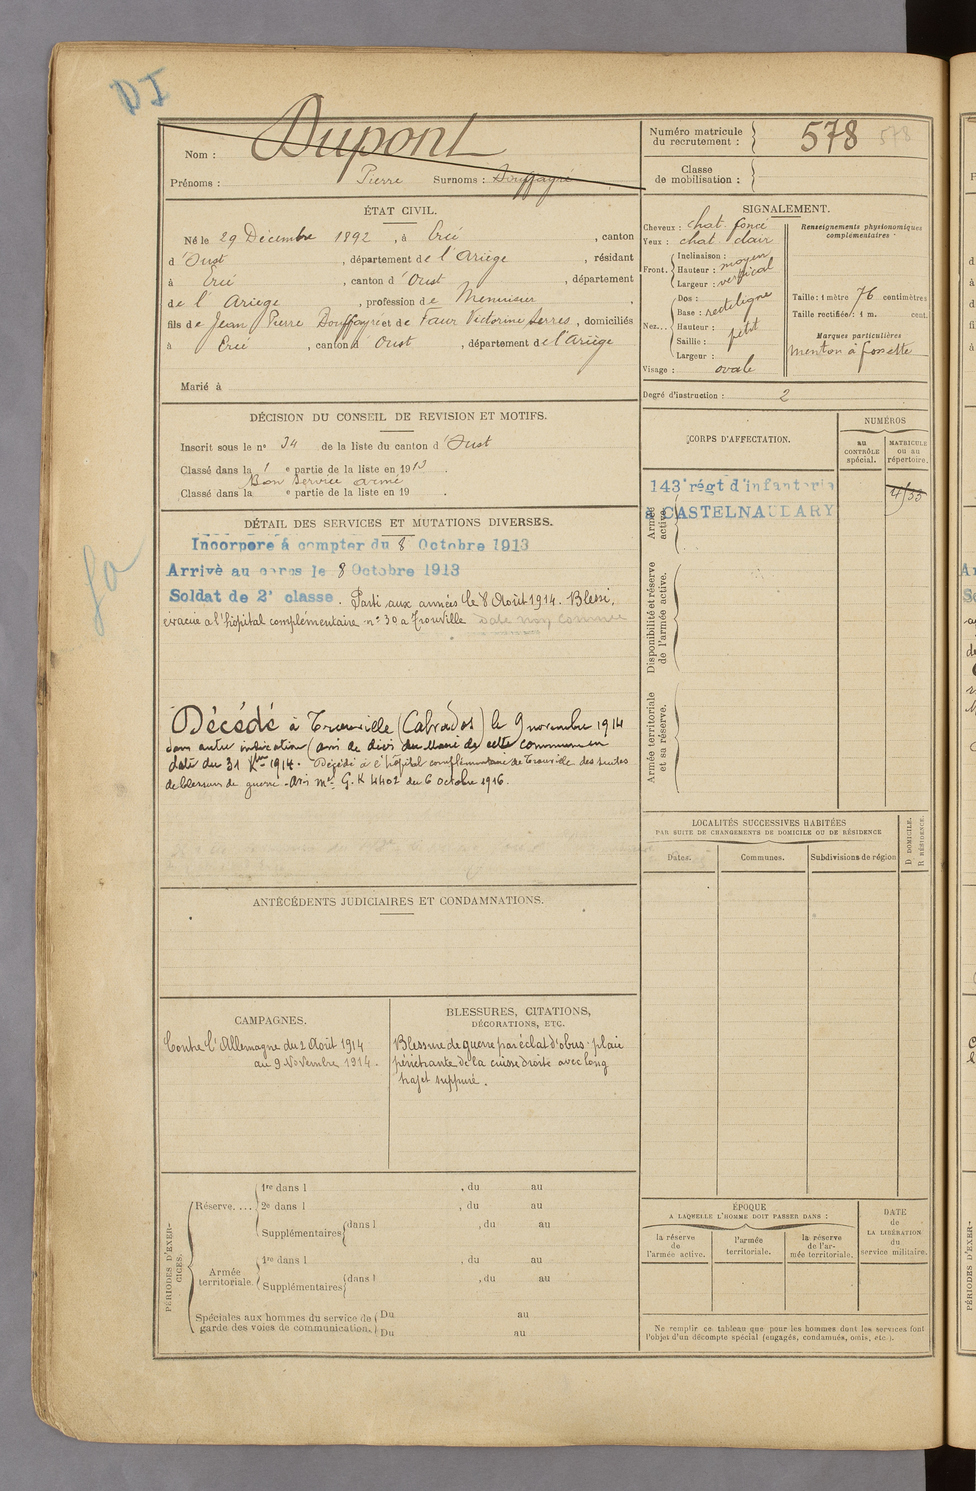 DI
Nom : Dupont
Prénoms : Pierre Surnoms : Douffayré
Numéro matricule du recrutement : 578 578
Classe de mobilisation :
ÉTAT CIVIL.
Né le 29 Décembre 1892, à Ercé, canton
d'Oust, département de l'Ariège, résidant
à Ercé, canton d'Oust, département
de l'Ariège, profession de Menuisier,
fils de Jean Pierre Douffayré et de Faur Victorine Serres, domiciliés
à Ercé, canton d'Oust, département de l'Ariège
Marié à
SIGNALEMENT.
Cheveux : chat. foncé
Yeux : chat. clair
Front. Inclinaison : moyen
Hauteur : vertical
Largeur :
Nez... Dos : rectiligne
Base :
Hauteur : petit
Saillie :
Largeur :
Visage : ovale
Renseignements physionomiques complémentaires :
Taille : 1 mètre 76 centimètres
Taille rectifiée : 1 m. cent.
Marques particulières
menton à fossette
Degré d'instruction : 2
DÉCISION DU CONSEIL DE REVISION ET MOTIFS.
Inscrit sous le n° 34 de la liste du canton d'Oust
Classé dans la 1e partie de la liste en 1913.
Bon service armé
Classé dans la e partie de la liste en 19 .
CORPS D'AFFECTATION.
NUMÉROS
au CONTRÔLE spécial.
MATRICULE ou au répertoire.
Armée active.
143e régt d'infanterie
à CASTELNAUDARY
Disponibilité et réserve de l'armée active.
Armée territoriale et sa réserve.
DÉTAIL DES SERVICES ET MUTATIONS DIVERSES.
Incorporé à compter du 8 Octobre 1913
Arrivé au corps le 8 Octobre 1913
Soldat de 2e classe. Parti aux armées le 8 Août 1914. Blessé,
évacué à l'hôpital complémentaire n° 30 à Trouville date non connue
Décédé à Trouville (Calvados) le 9 novembre 1914
sans autre indication (avis de décès du Maire de cette commune en
date du 31 Xbre 1914. Décédé à l'hôpital complémentaire de Trouville des suites
de blessures de guerre. Avis mel G.K 4402 du 6 octobre 1916.
LOCALITÉS SUCCESSIVES HABITÉES
PAR SUITE DE CHANGEMENTS DE DOMICILE OU DE RÉSIDENCE
Dates. Communes. Subdivisions de région
D DOMICILE.
R RÉSIDENCE.
ANTÉCÉDENTS JUDICIAIRES ET CONDAMNATIONS.
CAMPAGNES.
Contre l'Allemagne du 2 Août 1914
au 9 Novembre 1914.
BLESSURES, CITATIONS,
DÉCORATIONS, ETC.
Blessure de guerre par éclat d'obus : plaie
pénétrante de la cuisse droite avec long
trajet suppuré.
PÉRIODES D'EXERCICES.
Réserve.... 1re dans l , du au
2e dans l , du au
Supplémentaires dans l , du au
Armée territoriale. 1re dans l , du au
Supplémentaires dans l , du au
Spéciales aux hommes du service de garde des voies de communication. Du au
Du au
ÉPOQUE
A LAQUELLE L'HOMME DOIT PASSER DANS :
la réserve de l'armée active.
l'armée territoriale.
la réserve de l'armée territoriale.
DATE de LA LIBÉRATION du service militaire.
Ne remplir ce tableau que pour les hommes dont les services font
l'objet d'un décompte spécial (engagés, condamnés, omis, etc.).